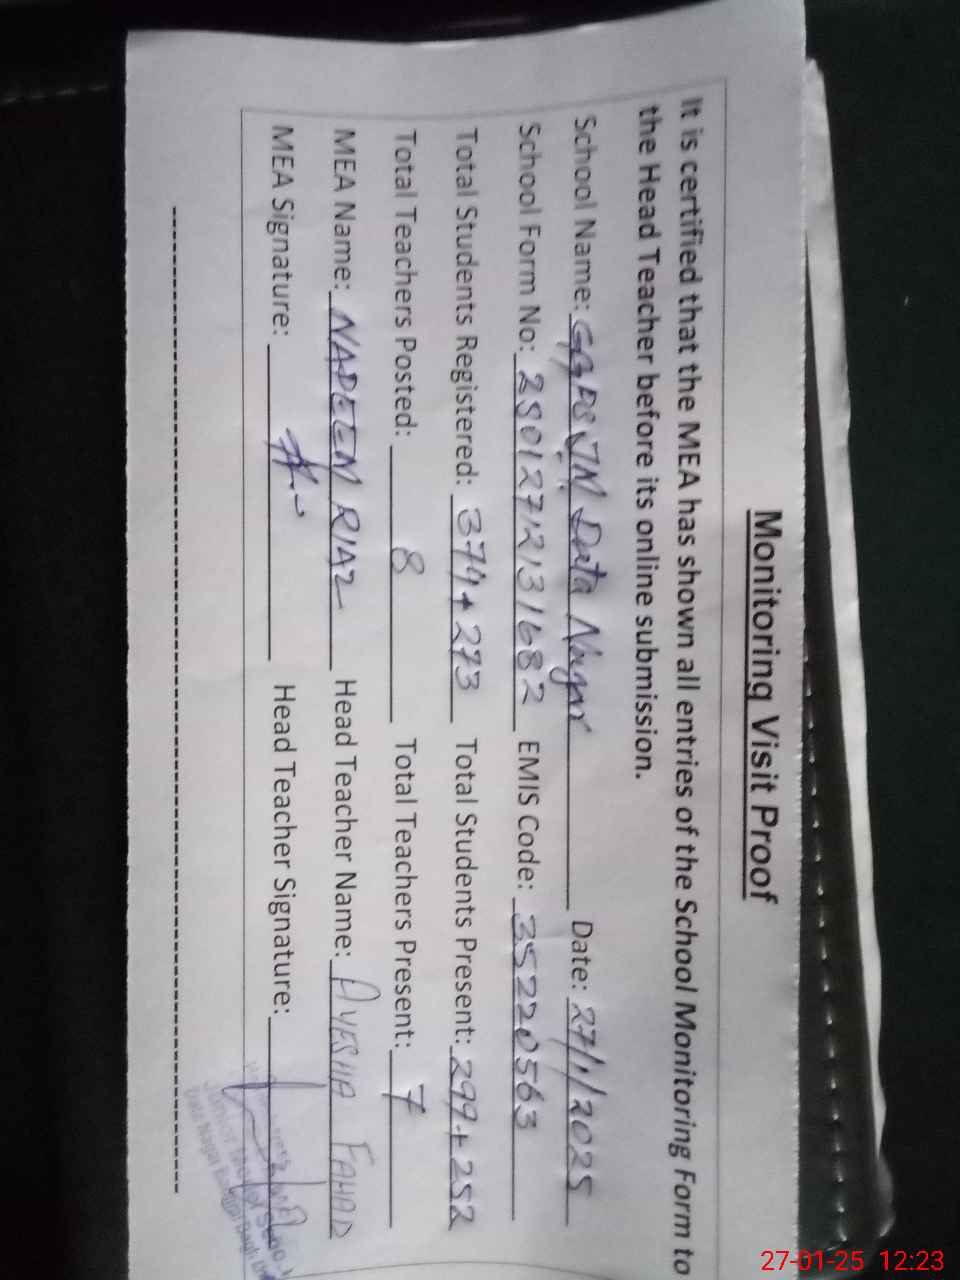 Monitoring Visit Proof
It is certified that the MEA has shown all entries of the School Monitoring Form to
the Head Teacher before its online submission.
School Name: GGPS JM Data Nagar Date: 27/1/2025
School Form No: 28012712131682 EMIS Code: 35220563
Total Students Registered: 374+273 Total Students Present: 299+252
Total Teachers Posted: 8 Total Teachers Present: 7
MEA Name: NADEEM RIAZ Head Teacher Name: AYESHA FAHAD
MEA Signature: Head Teacher Signature:
27-01-25 12:23